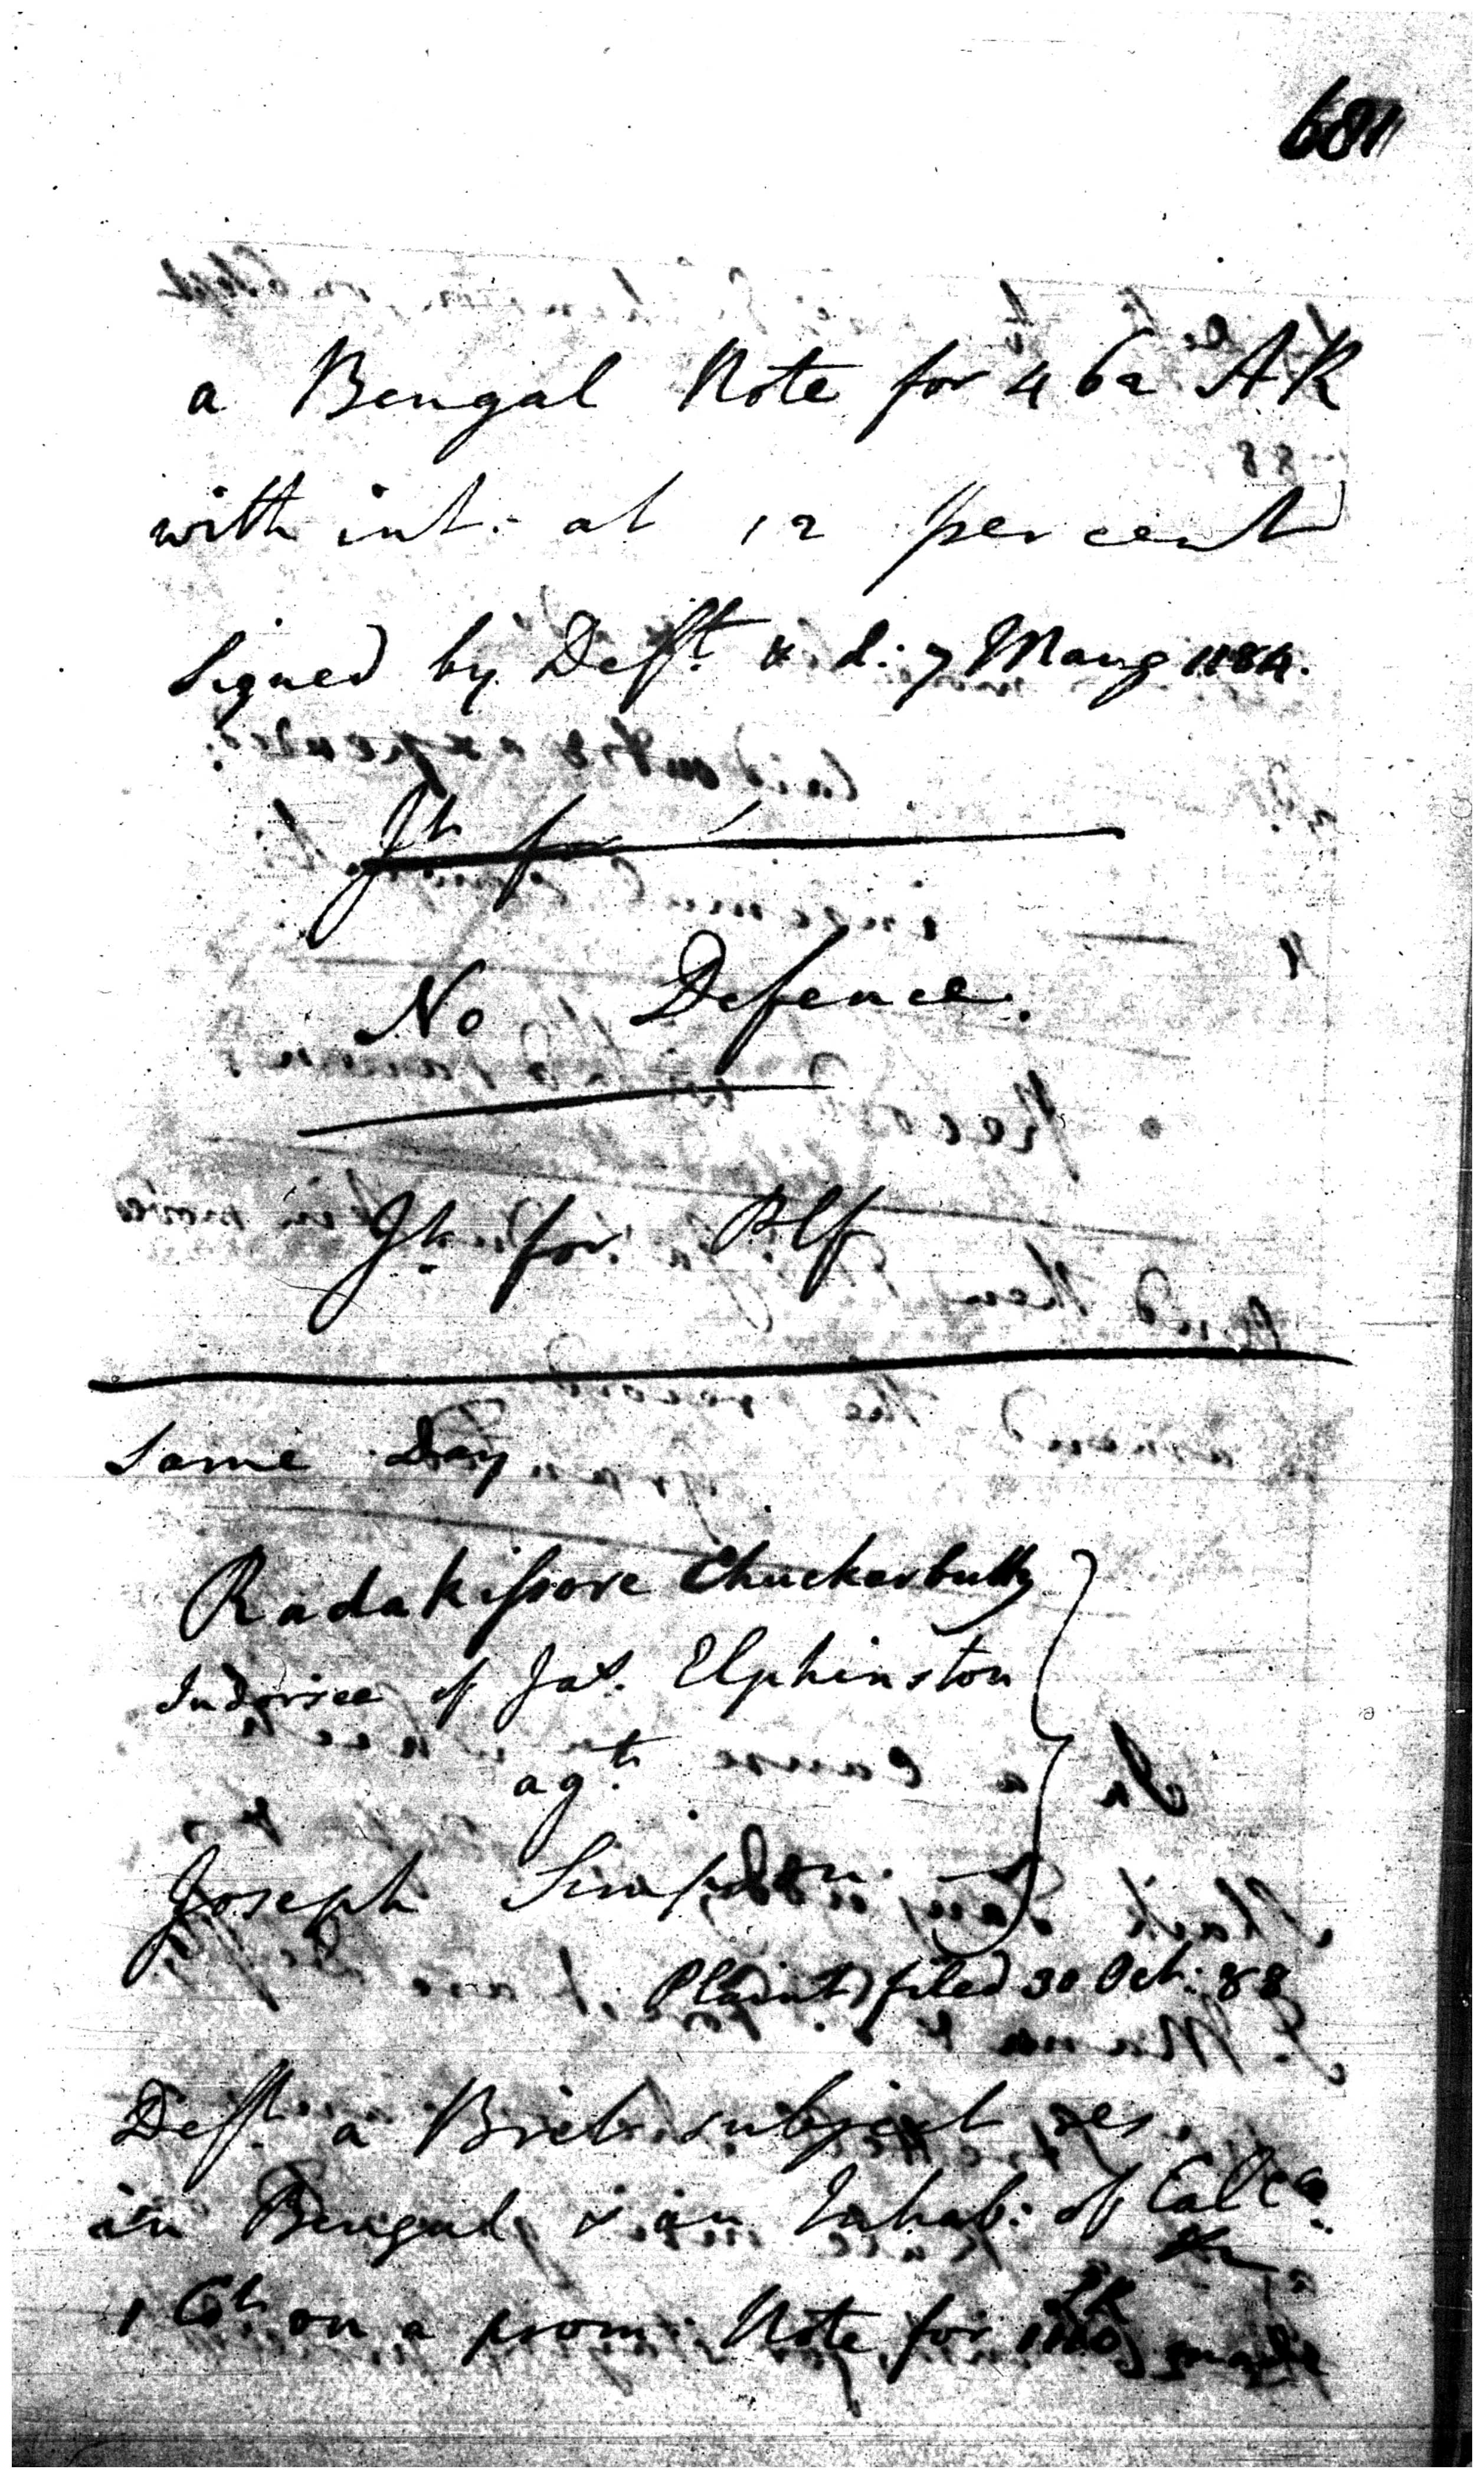 681
a Bengal Note for 462 AR
with int. at 12 per cent
Signed by Deft. & d: 7 Maug 1184.
Jt. for
No Defence.
Jt. for Plf
Same Day
Radakissore Chuckerbutty
Indorsee of Jas. Elphinston
agt.
Joseph Simpson
Plaint filed 30 Oct: 88
Deft. a Brit. subject res.
in Bengal & an Inhab: of Calca.
1 Ct. on a prom: Note for SR made